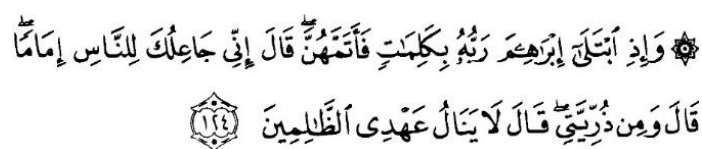 ۞ وَإِذِ ٱبْتَلَىٰٓ إِبْرَٰهِـۧمَ رَبُّهُۥ بِكَلِمَٰتٍ فَأَتَمَّهُنَّ ۖ قَالَ إِنِّى جَاعِلُكَ لِلنَّاسِ إِمَامًا ۖ
قَالَ وَمِن ذُرِّيَّتِى ۖ قَالَ لَا يَنَالُ عَهْدِى ٱلظَّٰلِمِينَ ١٢٤